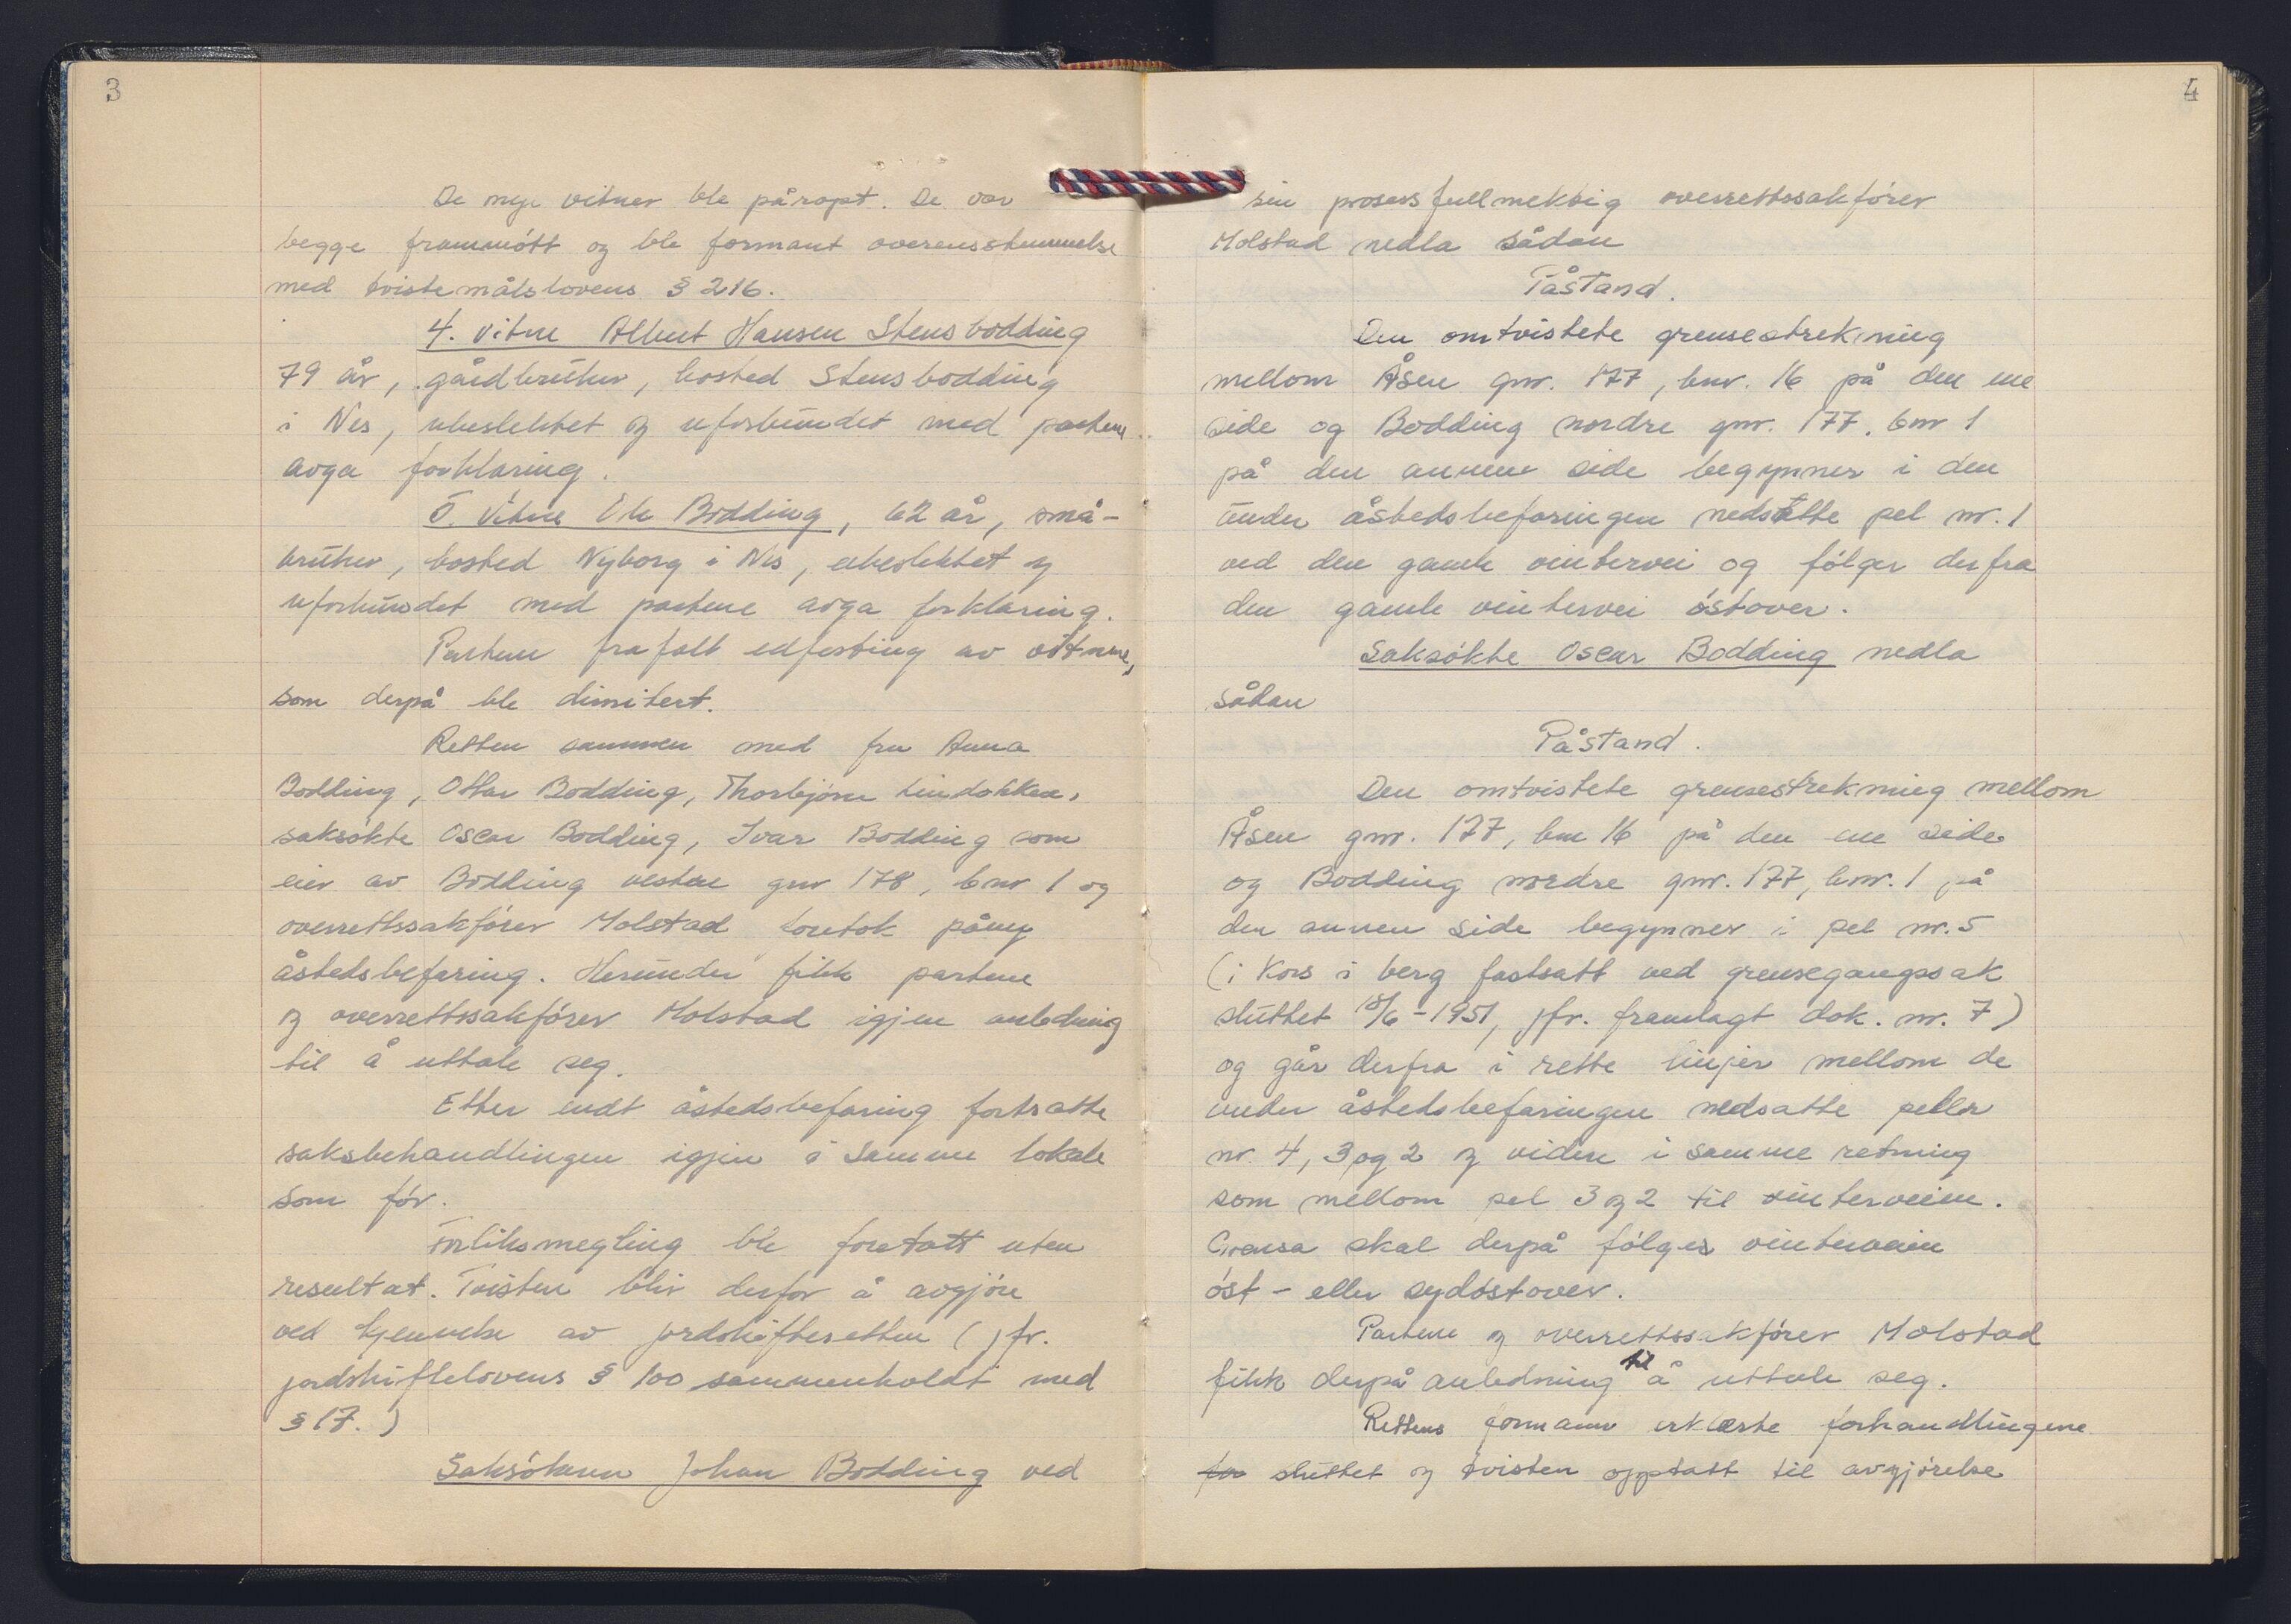 3
De nye vitner ble påropt. De var
begge frammött og ble formant overensstemmelse
med tvistemålslovens § 216.
4. vitne Albert Hansen Stensbodding
79 år, gårdbruker, bosted Stensbodding
i Nes, ubeslektet og uforbundet med partene
avga forklaring.
5. vitne Ole Bodding, 62 år, små-
bruker, bosted Nyborg i Nes, ubeslektet og
uforbundet med partene avga forklaring.
Partene frafalt edfesting av vitnene,
som derpå ble dimitert.
Retten sammen med fru Anna
Bodding, Ottar Bodding, Thorbjörn Lindokken,
saksökte Oscar Bodding, Ivar Bodding som
eier av Bodding vestre gnr 178, bnr 1 og
overrettssakförer Molstad foretok påny
åstedsbefaring. Herunder fikk partene
og overrettssakförer Molstad igjen anledning
til å uttale seg.
Etter endt åstedsbefaring fortsatte
saksbehandlingen igjen i samme lokale
som för.
Forliksmegling ble foretatt uten
resultat. Tvisten blir derfor å avgjöre
ved kjennelse av jordskifteretten (jfr.
jordskiftelovens § 100 sammenholdt med
§ 17.)
Saksökeren Johan Bodding ved
4
sin prosessfullmektig overrettssakförer
Molstad nedla sådan
Påstand.
Den omtvistete grensestrekning
mellom Åsen gnr. 177, bnr. 16 på den ene
side og Bodding nordre gnr. 177, bnr 1
på den annen side begynner i den
under åstedsbefaringen nedsatte pel nr. 1
ved den gamle vintervei og fölger derfra
den gamle vintervei östover.
Saksökte Oscar Bodding nedla
sådan
Påstand.
Den omtvistete grensestrekning mellom
Åsen gnr. 177, bnr 16 på den ene side
og Bodding nordre gnr. 177, bnr. 1 på
den annen side begynner i pel nr. 5
(i kors i berg fastsatt ved grensegangssak
sluttet /6-1951, jfr. framlagt dok. nr. 7)
og går derfra i rette linjer mellom de
under åstedsbefaringen nedsatte peler
nr. 4, 3 og 2 og videre i samme retning
som mellom pel 3 og 2 til vinterveien.
Grensa skal derpå fölges vinterveien
öst- eller sydöstover.
Partene og overrettssakförer Molstad
fikk derpå anledning til å uttale seg.
Rettens formann erklærte forhandlingene
for sluttet og tvisten opptatt til avgjörelse